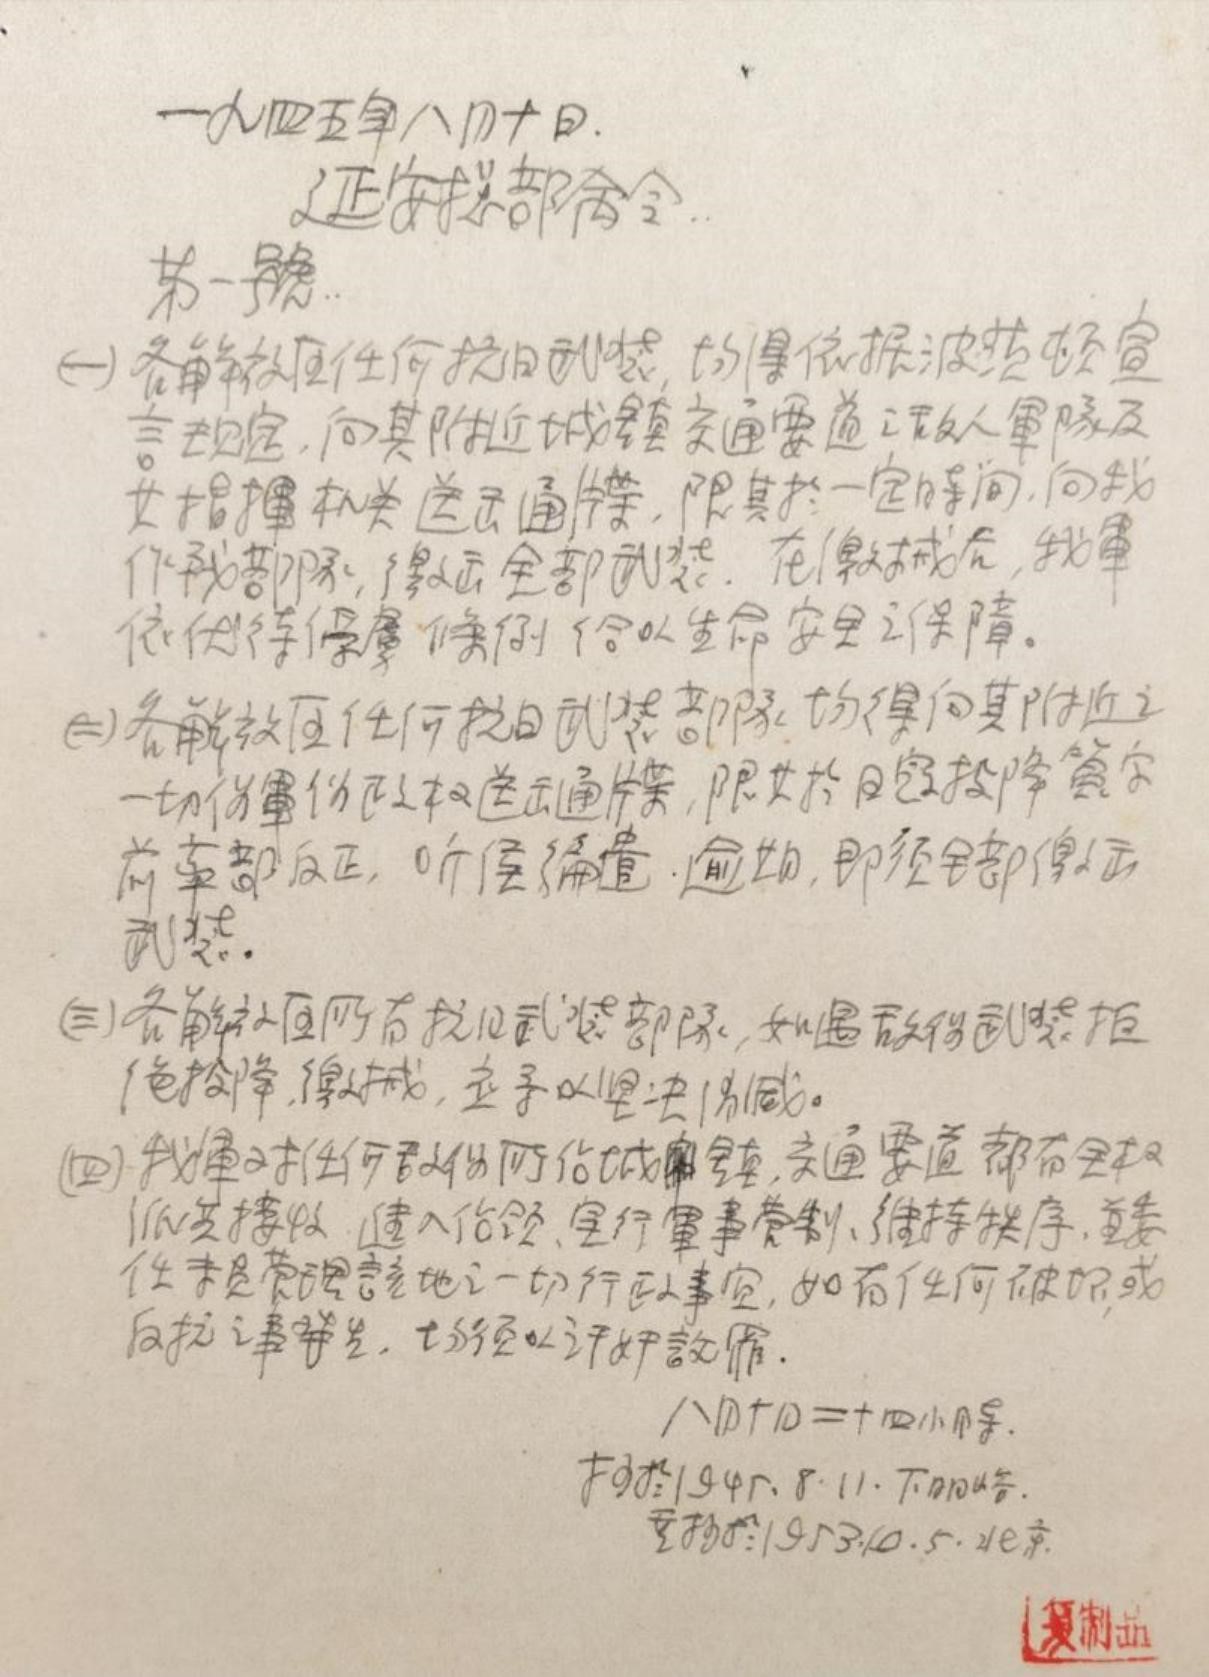 一九四五年八月十日.
延安总部命令..
第一號..
(一) 各解放区任何抗日武装, 均得依据波茨顿宣
言规定, 向其附近城鎮交通要道之敌人軍隊及
其指揮机关送出通牒, 限其於一定時间, 向我
作战部隊, 缴出全部武装. 在缴械后, 我軍
依优待俘虜條例给以生命安全之保障。
(二) 各解放区任何抗日武装部隊均得向其附近之
一切伪軍伪政权送出通牒, 限其於日寇投降簽字
前率部反正, 听候编遣. 逾期, 即须全部缴出
武装。
(三) 各解放区所有抗日武装部隊, 如遇敌伪武装拒
绝投降, 缴械, 应予以坚决消滅。
(四) 我軍对任何敌伪所佔城鎮, 交通要道都有全权
派兵接收 進入佔领、实行軍事管制、维持秩序, 並委
任专员管理該地之一切行政事宜, 如有任何破坏或
反抗之事發生, 均须以汗奸論罪.
八月十日二十四小時.
抄於1945.8.11.下朋峪.
重抄於1953.10.5.北京.
复制品